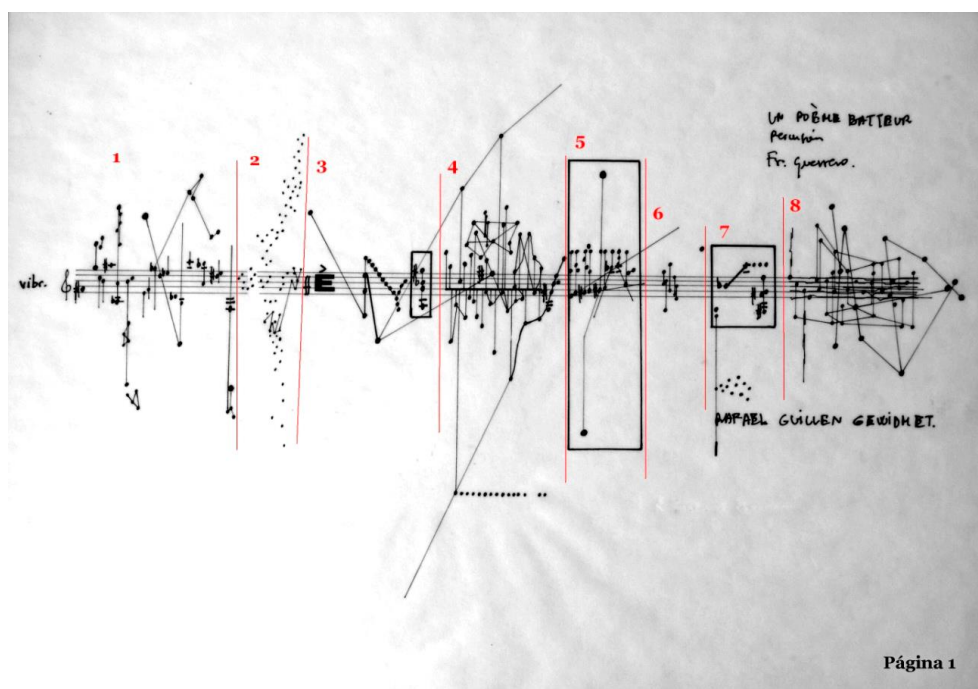 UN POÈME BATTEUR
Percusión
Fr. Guerrero.
1
2
3
4
5
6
7
8
vibr.
RAFAEL GUILLEN GEWIDMET.
Página 1